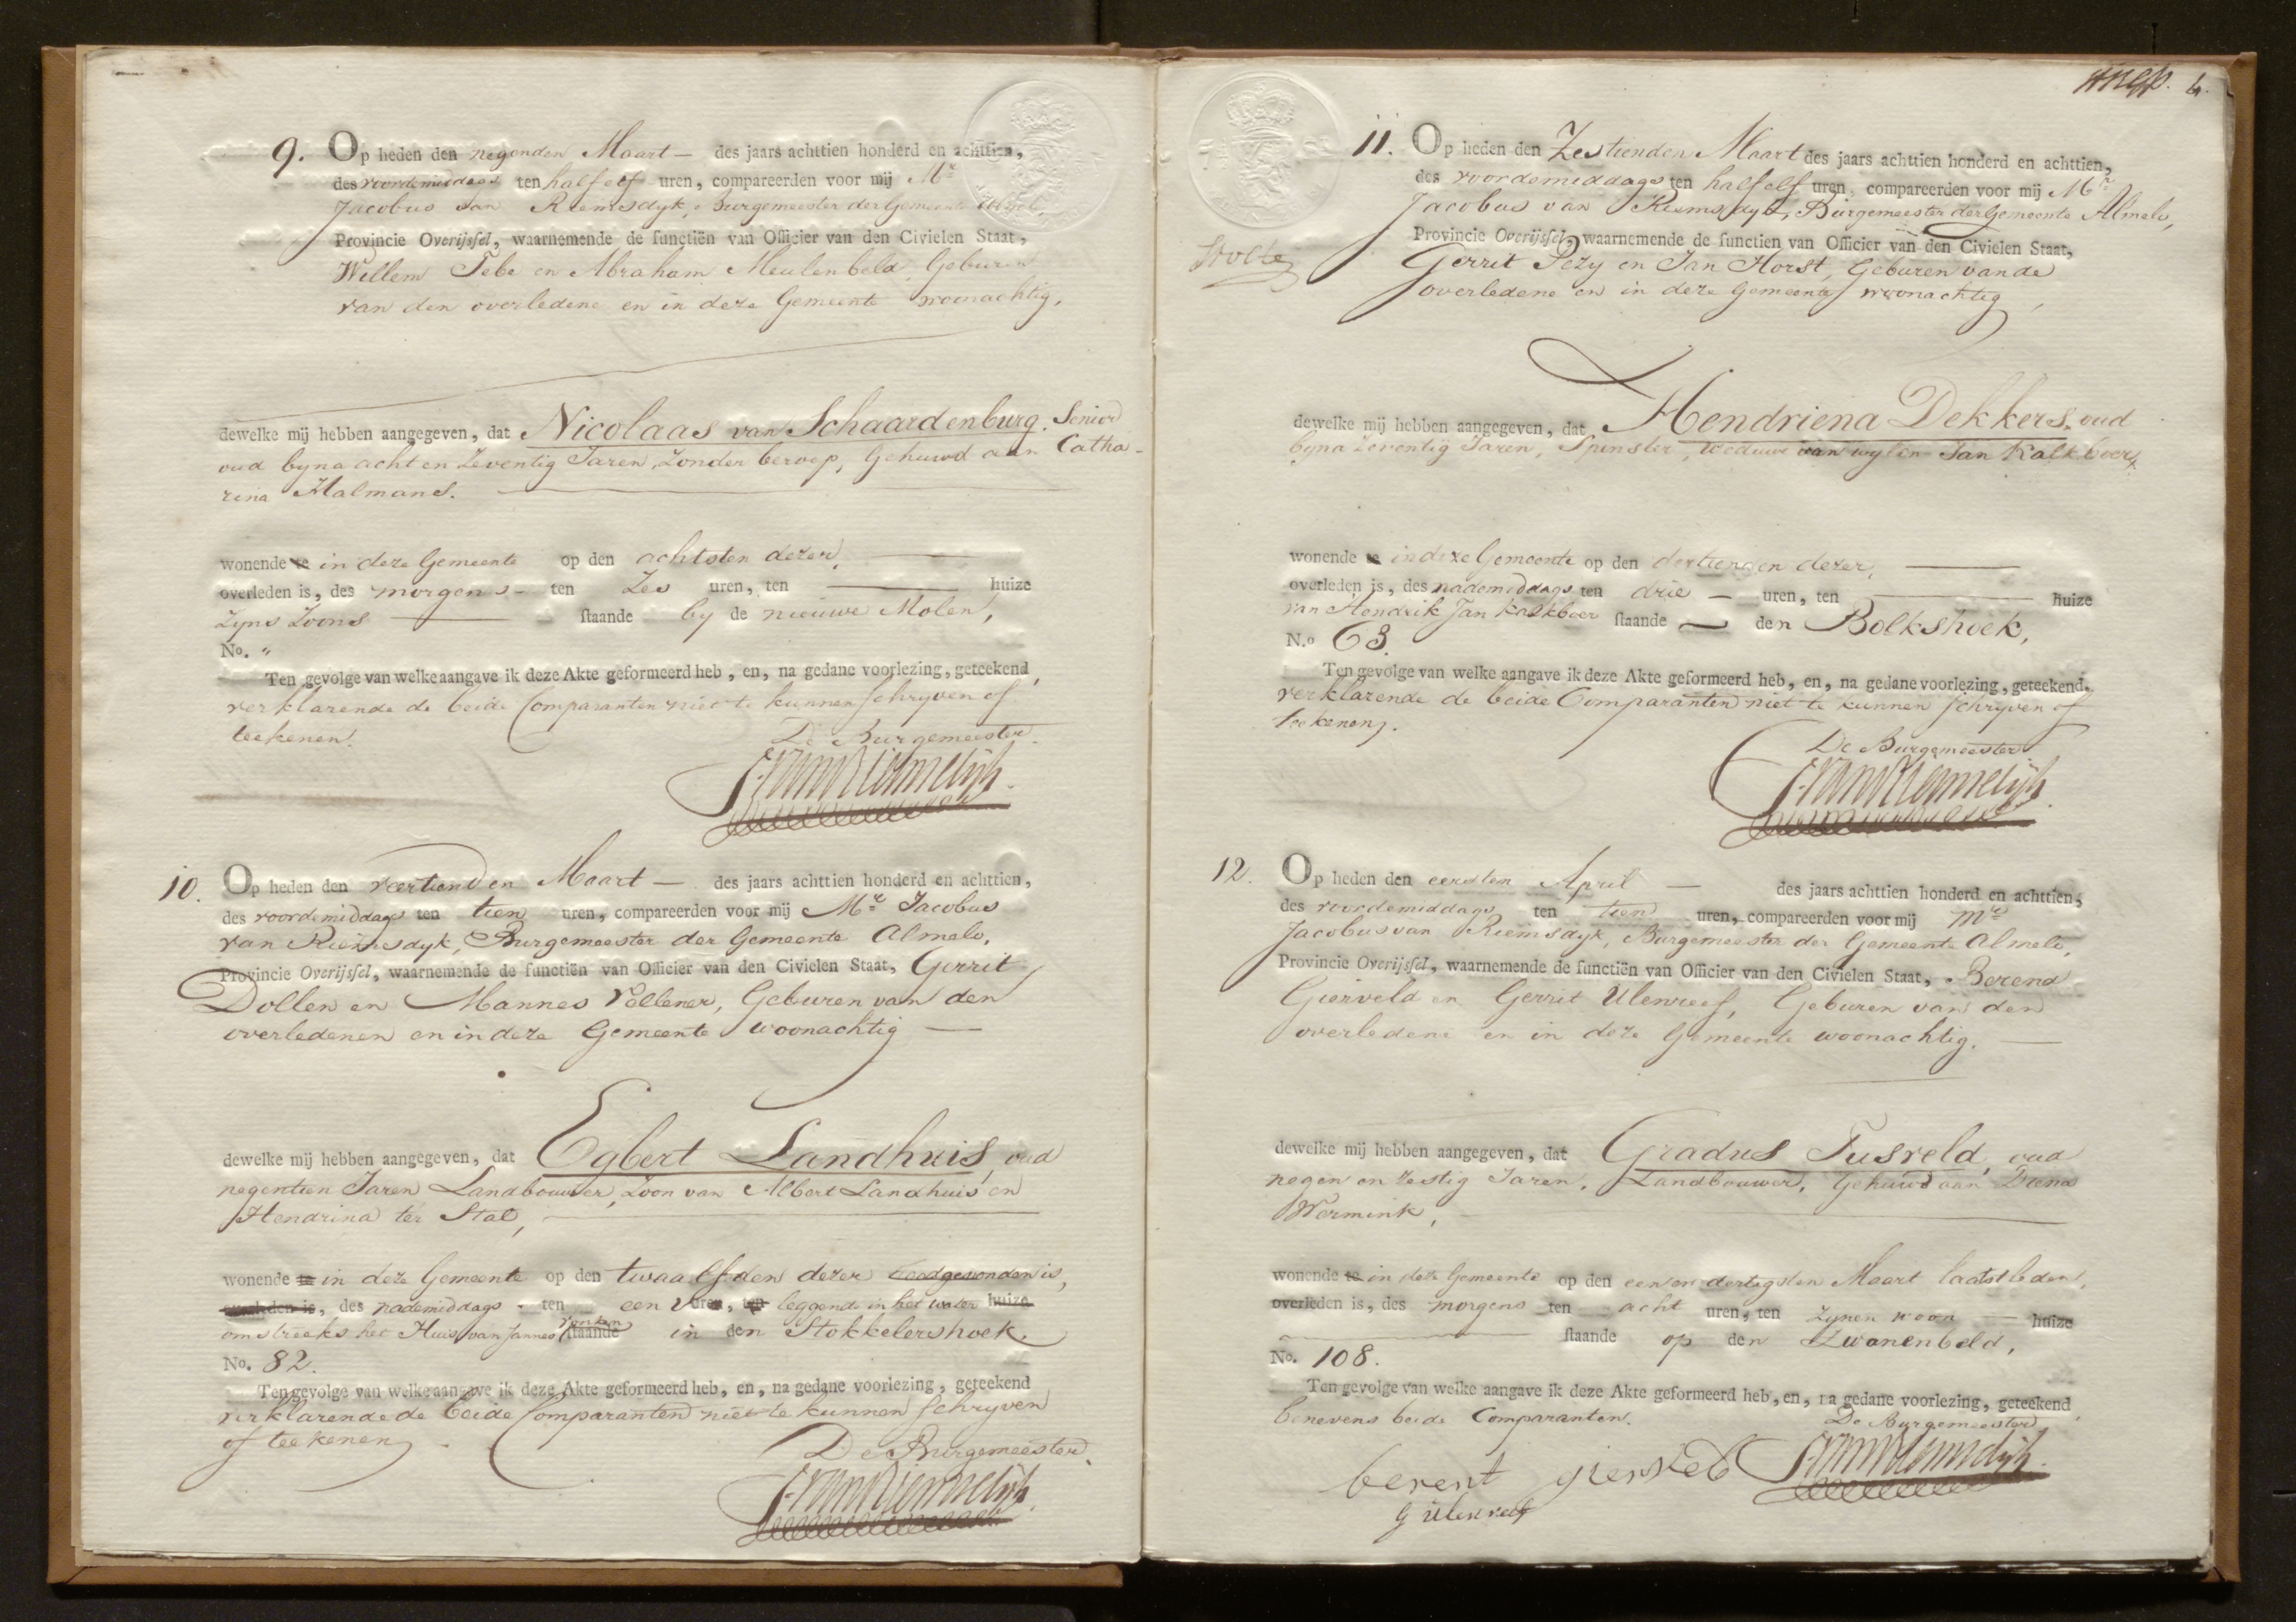 9. Op heden den negenden Maart — des jaars achttien honderd en achttien,
des voordemiddags ten half elf uren, compareerden voor mij Mr
Jacobus van Riemsdyk, Burgemeester der Gemeente Almelo,
Provincie Overijssel, waarnemende de functiën van Officier van den Civielen Staat,
Willem Tebe en Abraham Meulenbeld, Geburen
van den overledene en in deze Gemeente woonachtig,
dewelke mij hebben aangegeven, dat Nicolaas van Schaardenburg. Senior
oud byna acht en Zeventig Jaren, Zonder beroep, Gehuwd aan Catha-
rina Halmans.
wonende te in deze Gemeente op den achtsten dezer,
overleden is, des morgens - ten Zes uren, ten — huize
Zyns Zoons — staande by de nieuwe Molen,
No. "
Ten gevolge van welke aangave ik deze Akte geformeerd heb, en, na gedane voorlezing, geteekend,
verklarende de beide Comparanten niet te kunnen schryven of
teekenen.
De Burgemeester
J. van Riemsdijk.
10. Op heden den veertienden Maart — des jaars achttien honderd en achttien,
des voordemiddags ten tien uren, compareerden voor mij Mr Jacobus
van Riemsdyk, Burgemeester der Gemeente Almelo,
Provincie Overijssel, waarnemende de functiën van Officier van den Civielen Staat, Gerrit
Dollen en Mannes Vellener, Geburen van den
overledenen en in deze Gemeente woonachtig —
dewelke mij hebben aangegeven, dat Egbert Landhuis, oud
negentien Jaren Landbouwer, Zoon van Albert Landhuis en
Hendrina ter Stal,
wonende te in deze Gemeente op den twaalfden dezer doodgevonden is,
overleden is, des nademiddags - ten een uren, ten leggende in het water huize
omstreeks het Huis van Jannes staande in den Stokkelershoek.
No. 82.
Ten gevolge van welke aangave ik deze Akte geformeerd heb, en, na gedane voorlezing, geteekend
verklarende de beide Comparanten niet te kunnen schryven
of teekenen.
De Burgemeester.
J. van Riemsdijk.
6.
Stolte
11. Op heden den Zestienden Maart des jaars achttien honderd en achttien,
des voordemiddags ten half elf uren, compareerden voor mij Mr
Jacobus van Riemsdyk, Burgemeester der Gemeente Almelo,
Provincie Overijssel, waarnemende de functien van Officier van den Civielen Staat,
Gerrit Pezy en Jan Horst, Geburen van de
overledene en in deze Gemeente woonachtig,
dewelke mij hebben aangegeven, dat Hendriena Dekkers, oud
byna Zeventig Jaren, Spinster, Weduwe van wylen Jan Kalkboer,
wonende te in deze Gemeente op den dertienden dezer,
overleden is, des nademiddags ten drie — uren, ten — huize
van Hendrik Jan Kalkboer staande — den Bolkshoek,
No. 63.
Ten gevolge van welke aangave ik deze Akte geformeerd heb, en, na gedane voorlezing, geteekend,
verklarende de beide Comparanten niet te kunnen schryven of
teekenen.
De Burgemeester
J. van Riemsdijk.
12. Op heden den eersten April — des jaars achttien honderd en achttien,
des voordemiddags ten tien uren, compareerden voor mij Mr
Jacobus van Riemsdyk, Burgemeester der Gemeente Almelo,
Provincie Overijssel, waarnemende de functiën van Officier van den Civielen Staat, Berend
Gierveld en Gerrit Ulenreef, Geburen van den
overledene en in deze Gemeente woonachtig.
dewelke mij hebben aangegeven, dat Gradus Tusveld, oud
negen en Zestig Jaren, Landbouwer, Gehuwd aan Diena
Wermink,
wonende te in deze Gemeente op den een en dertigsten Maart laatstleden,
overleden is, des morgens ten acht uren, ten zynen woon — huize
— staande op den Zwanenbeld,
No. 108.
Ten gevolge van welke aangave ik deze Akte geformeerd heb, en, na gedane voorlezing, geteekend
benevens beide Comparanten.
De Burgemeester
J. van Riemsdijk.
berent
G Ulenreef